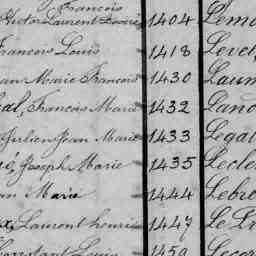 François
Victor Laurent 1404 Lemo
François Louis 1418 Level
an Marie François 1430 Laum
al, François Marie 1432 Lano
Julien Jean Marie 1433 Legal
Joseph Marie 1435 Lecle
an Marie 1444 Lebre
x, Laurent henri 1447 Le
Constant Louis 1450 Lecor